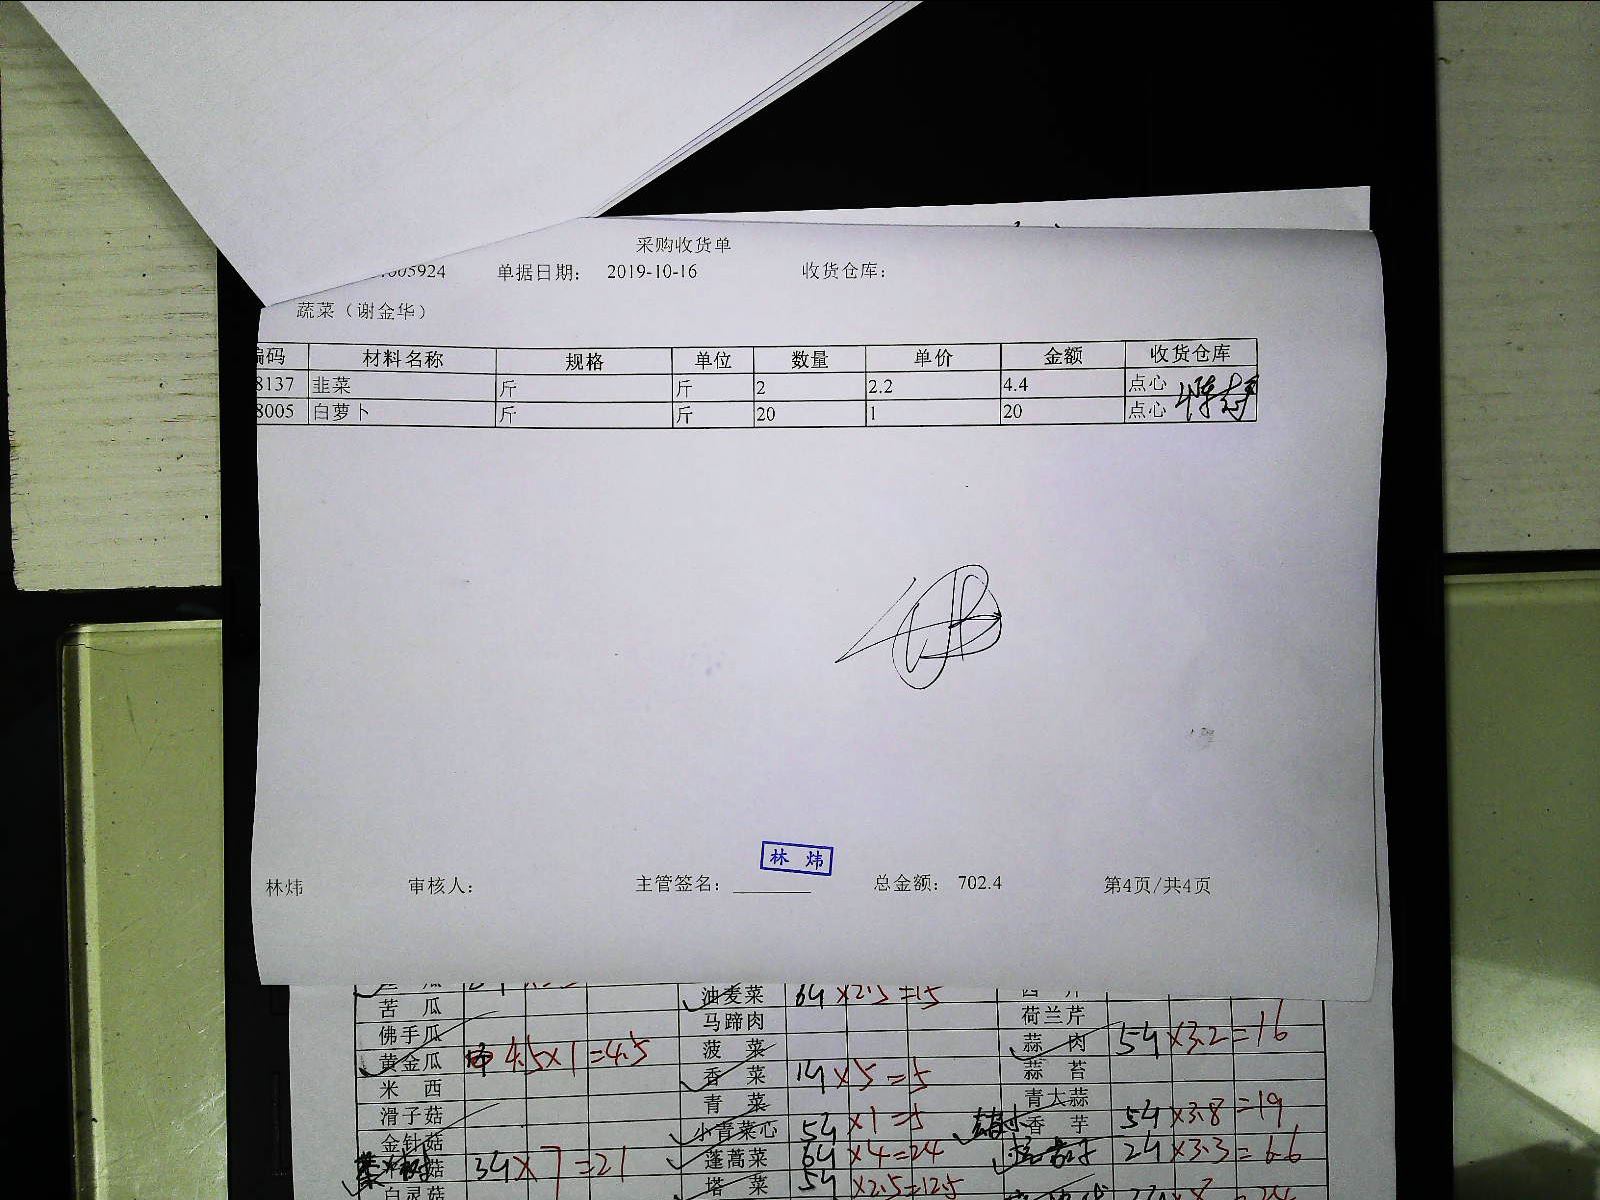 采购收货单
005924 单据日期: 2019-10-16 收货仓库:
蔬菜（谢金华）
编码 材料名称 规格 单位 数量 单价 金额 收货仓库
8137 韭菜 斤 斤 2 2.2 4.4 点心
8005 白萝卜 斤 斤 20 1 20 点心
林炜
林炜 审核人: 主管签名: 总金额: 702.4 第4页/共4页
油麦菜 ×2.5=15
苦 瓜 马蹄肉 荷兰芹
佛手瓜 菠 菜 蒜 肉 ×3.2=16
黄金瓜 4.5×1=4.5 香 菜 ×5=5 蒜 苔
米 西 青 菜 青大蒜
滑子菇 小青菜心 ×1=5 香 芋 ×3.8=19
金针菇 蓬蒿菜 ×4=24 ×3.3=6.6
菇 ×7=21 塔 菜 ×2.5=12.5
白灵菇